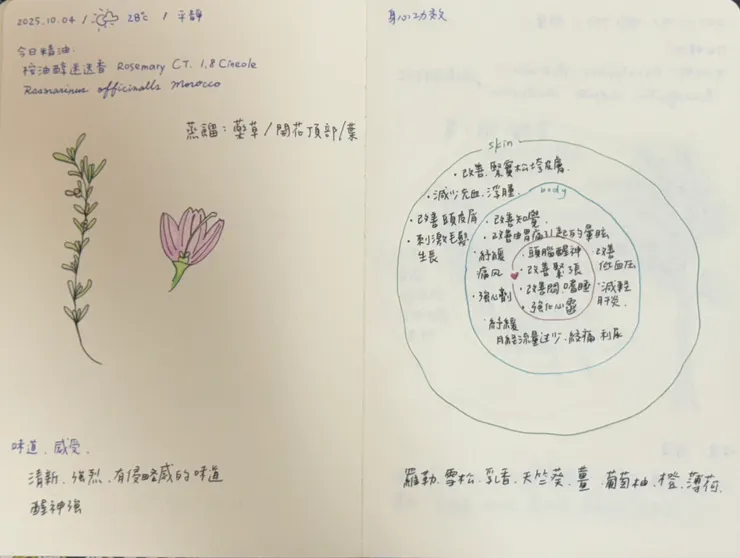 2025.10.04 / 28°c / 平靜
今日精油:
桉油醇迷迭香 Rosemary CT. 1.8 Cineole
Rosmarinus officinalls Morocco
蒸餾：藥草/開花頂部/葉
味道、感受、
清新、強烈、有侵略感的味道
醒神強
身心功效
skin
・改善、緊實松垮皮膚
・減少充血、浮腫
・改善頭皮屑
・刺激毛髮
生長
body
・改善知覺
・改善由胃痛引起的暈眩
・舒緩
痛風
・強心劑
・舒緩
月經流量過少、經痛、利尿
・改善
低血壓
・減輕
肝炎
・頭腦醒神
・改善緊張
・改善悶、嗜睡
・強化心靈
羅勒、雪松、乳香、天竺葵、薑、葡萄柚、橙、薄荷